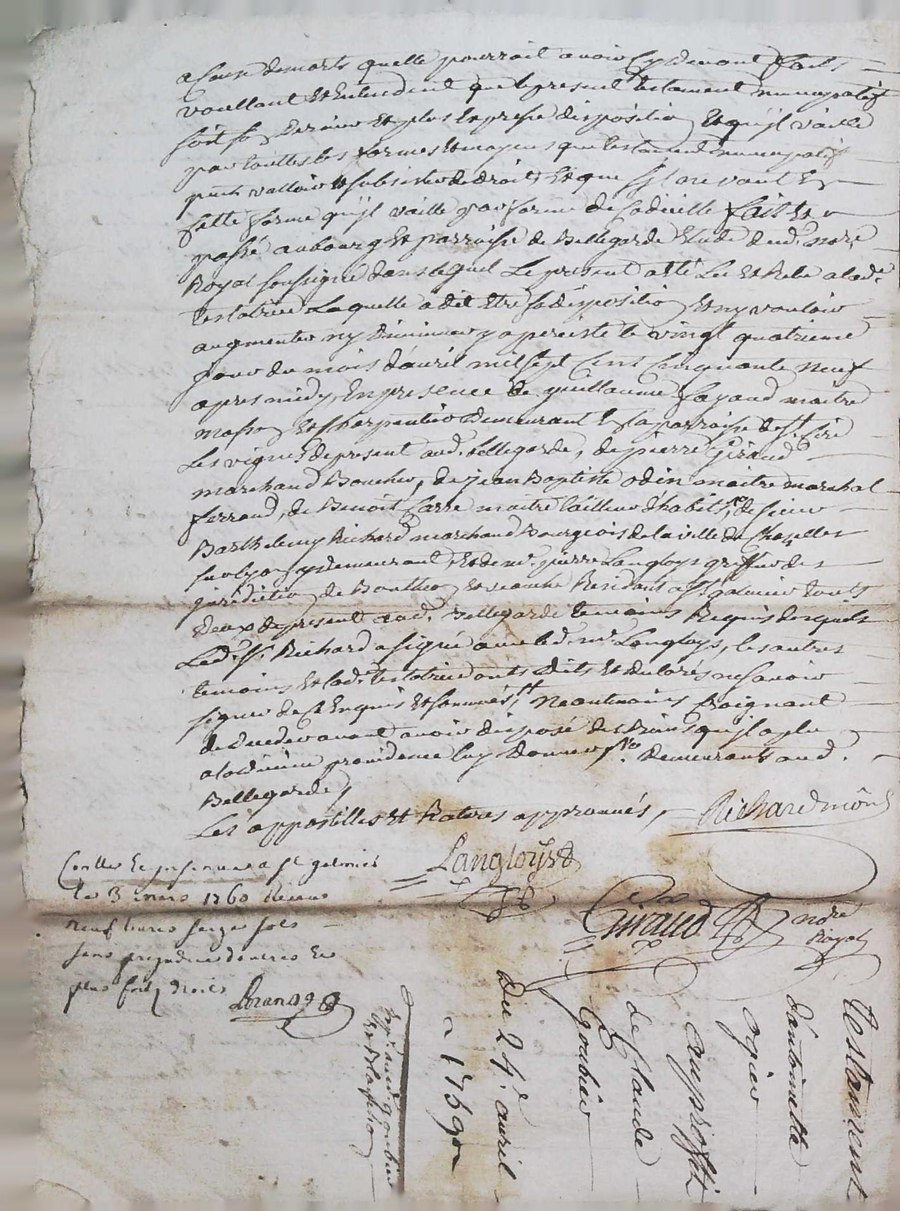 a cause de morts quelle pourroit avoir cy devant faits
voullant et entendant que le present testament noncupatif
soit sa derniere et plus expresse disposition et qu'jl vaille
par touttes les formes et moyens que testament noncupatif
peut valloir et subsister de droit et que s'jl ne vaut en
cette forme qu'jl vaille par forme de codicille fait et
passé au bourg et parroisse de Bellegarde etude dud.t no.re
Royal soussigné dans lequel le present a été leu et releu a lad.e
testatrice laquelle a dit etre sa disposition et ny vouloir
augmenter ny diminuer y a persisté le vingt quatrieme
jour du mois d'auril mil sept cens cinquante neuf
apres midy en presence de guillaume fayaud maitre
masson et charpentier demeurant en la parroisse de s.t Cire
les vignes de present aud. bellegarde, de pierre giraud
marchand Boucher, de jean Baptiste odin maitre marechal
ferrand, de Benoit Carre maitre tailleur d'habits, de sieur
Barthelemy Richard marchand Bourgeois de la ville de
sur lyon y demeurant et de m.r pierre Langloys greffier des
juridiction de Bouthéon et seanne Rendant a s.t galmier tous
deux de present aud. Bellegarde temoins Requis desquels
Led. s.r Richard a signé avec led. m.r Langloys, les autres
temoins et lad.e testatrice ont dits et declarés ne scavoir
signer de ce enquis et sommés, neantmoins craignant
de deceder avant avoir disposé des Biens qu'jl a plu
a la divine providence luy donner demeurants aud.
Bellegarde
Les appostilles et Ratures approuvés,
Richard
Langloys
Giraud no.re
Royal
Con.llé et jnsinué a s.t galmier
le 3 mars 1760 Receu
neuf livres seize sols
sans prejudice d'autres et
plus forts droits
Testament
d'antoinette
ogier
au proffit
de claude
Goubier
Du 24.e auril
1759